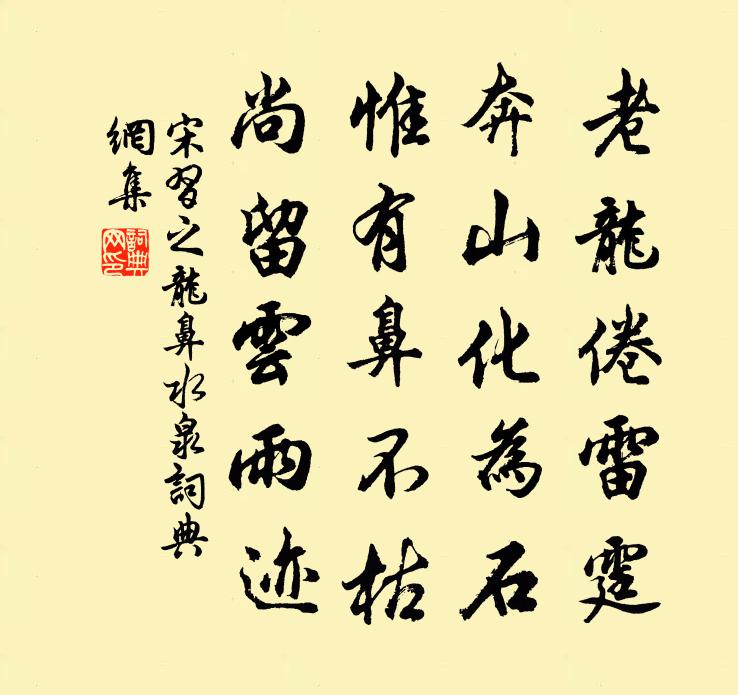 老龍倦雷霆
奔山化為石
惟有鼻不枯
尚留雲雨迹
宋習之龍鼻水泉詞典
網集
詞典網印